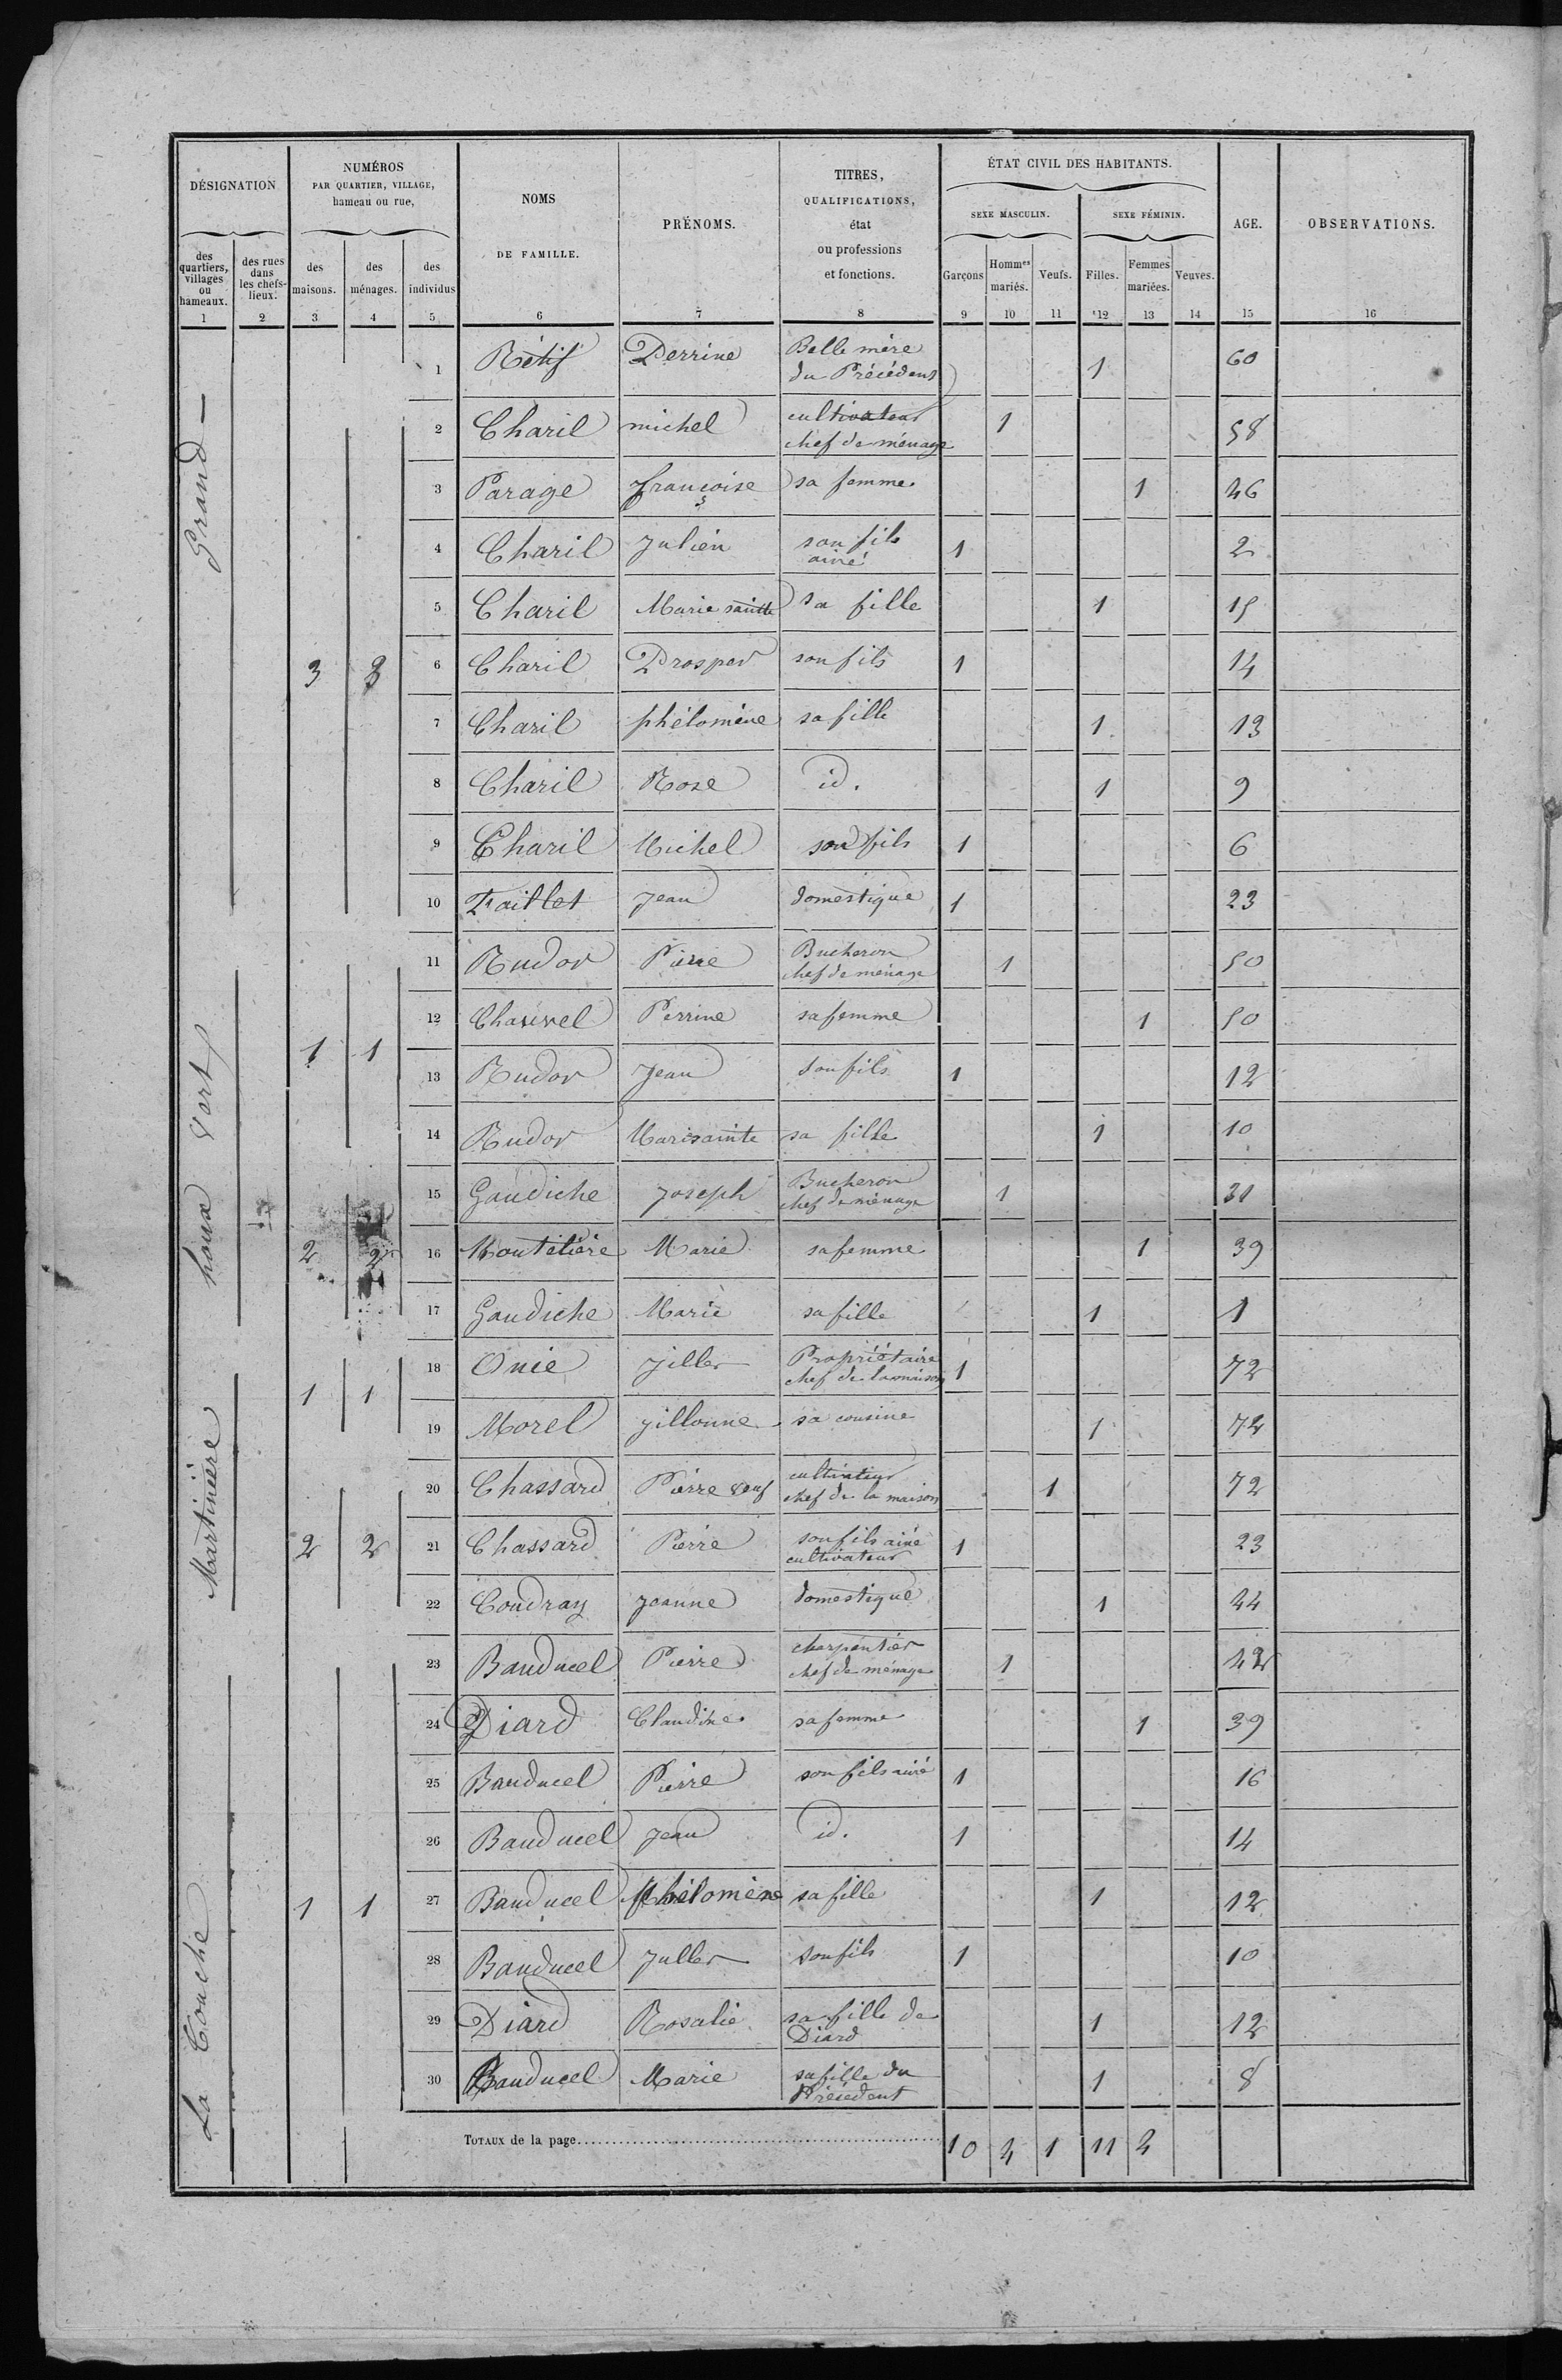 DÉSIGNATION
NUMÉROS
PAR QUARTIER, VILLAGE,
hameau ou rue,
NOMS
DE FAMILLE.
PRÉNOMS.
TITRES,
QUALIFICATIONS,
état
ou professions
et fonctions.
ÉTAT CIVIL DES HABITANTS.
SEXE MASCULIN. SEXE FÉMININ.
AGE.
OBSERVATIONS.
des quartiers, villages ou hameaux.
des rues dans les chefs-lieux.
des maisons.
des ménages.
des individus
Garçons Hommes mariés. Veufs. Filles. Femmes mariées. Veuves.
1 2 3 4 5 6 7 8 9 10 11 12 13 14 15 16
Grand
3 3
1 Rétif Perrine Belle mère du Précédent 1 60
2 Charil michel cultivateur chef de ménage 1 58
3 Parage françoise sa femme 1 46
4 Charil Julien son fils ainé 1 2
5 Charil Marie sainte sa fille 1 15
6 Charil Prosper son fils 1 14
7 Charil phélomène sa fille 1 13
8 Charil Rose id. 1 9
9 Charil Michel son fils 1 6
10 Taillet Jean domestique 1 23
houx Vert
1 1
11 Rudor Pierre Bucheron chef de ménage 1 50
12 Perrine sa femme 1 50
13 Rudor Jean son fils 1 12
14 Rudor Marisainte sa fille 1 10
2 2
15 Gaudiche Joseph Bucheron chef de ménage 1 31
16 Moutelière Marie sa femme 1 39
17 Gaudiche Marie sa fille 1 1
Martinière
1 1
18 Onie Jilles Propriétaire chef de la maison 1 72
19 Morel jillonne sa cousine 1 72
2 2
20 Chassard Pierre veuf cultivateur chef de la maison 1 72
21 Chassard Pierre son fils ainé cultivateur 1 23
22 Coudray Jeanne domestique 1 44
La Touche
1 1
23 Bauducel Pierre charpentier chef de ménage 1 42
24 Diard Claudine sa femme 1 39
25 Bauducel Pierre son fils ainé 1 16
26 Bauducel Jean id. 1 14
27 Bauducel Phélomène sa fille 1 12
28 Bauducel Julles son fils 1 10
29 Diard Rosalie sa fille de Diard 1 12
30 Bauducel Marie sa fille du Précedent 1 8
TOTAUX de la page 10 4 1 11 4